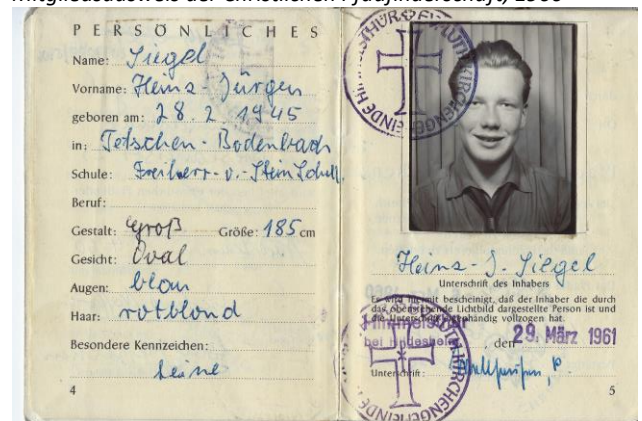 Mitgliedsausweis der Christlichen Pfadfinderschaft, 1960
PERSÖNLICHES
Name: Siegel
Vorname: Heinz-Jürgen
geboren am: 28. 2. 1945
in: Tetschen-Bodenbach
Schule: Freiherr-v.-Stein Schule
Beruf:
Gestalt: groß Größe: 185 cm
Gesicht: Oval
Augen: blau
Haar: rotblond
Besondere Kennzeichen:
keine
4
Heinz-J. Siegel
Unterschrift des Inhabers
Es wird hiermit bescheinigt, daß der Inhaber die durch
das obenstehende Lichtbild dargestellte Person ist und
die Unterschrift eigenhändig vollzogen hat.
bei Hildesheim, den 29. März 1961
Unterschrift:
5
EV. LUTH. KIRCHENGEMEINDE
KIRCHENGEMEINDE